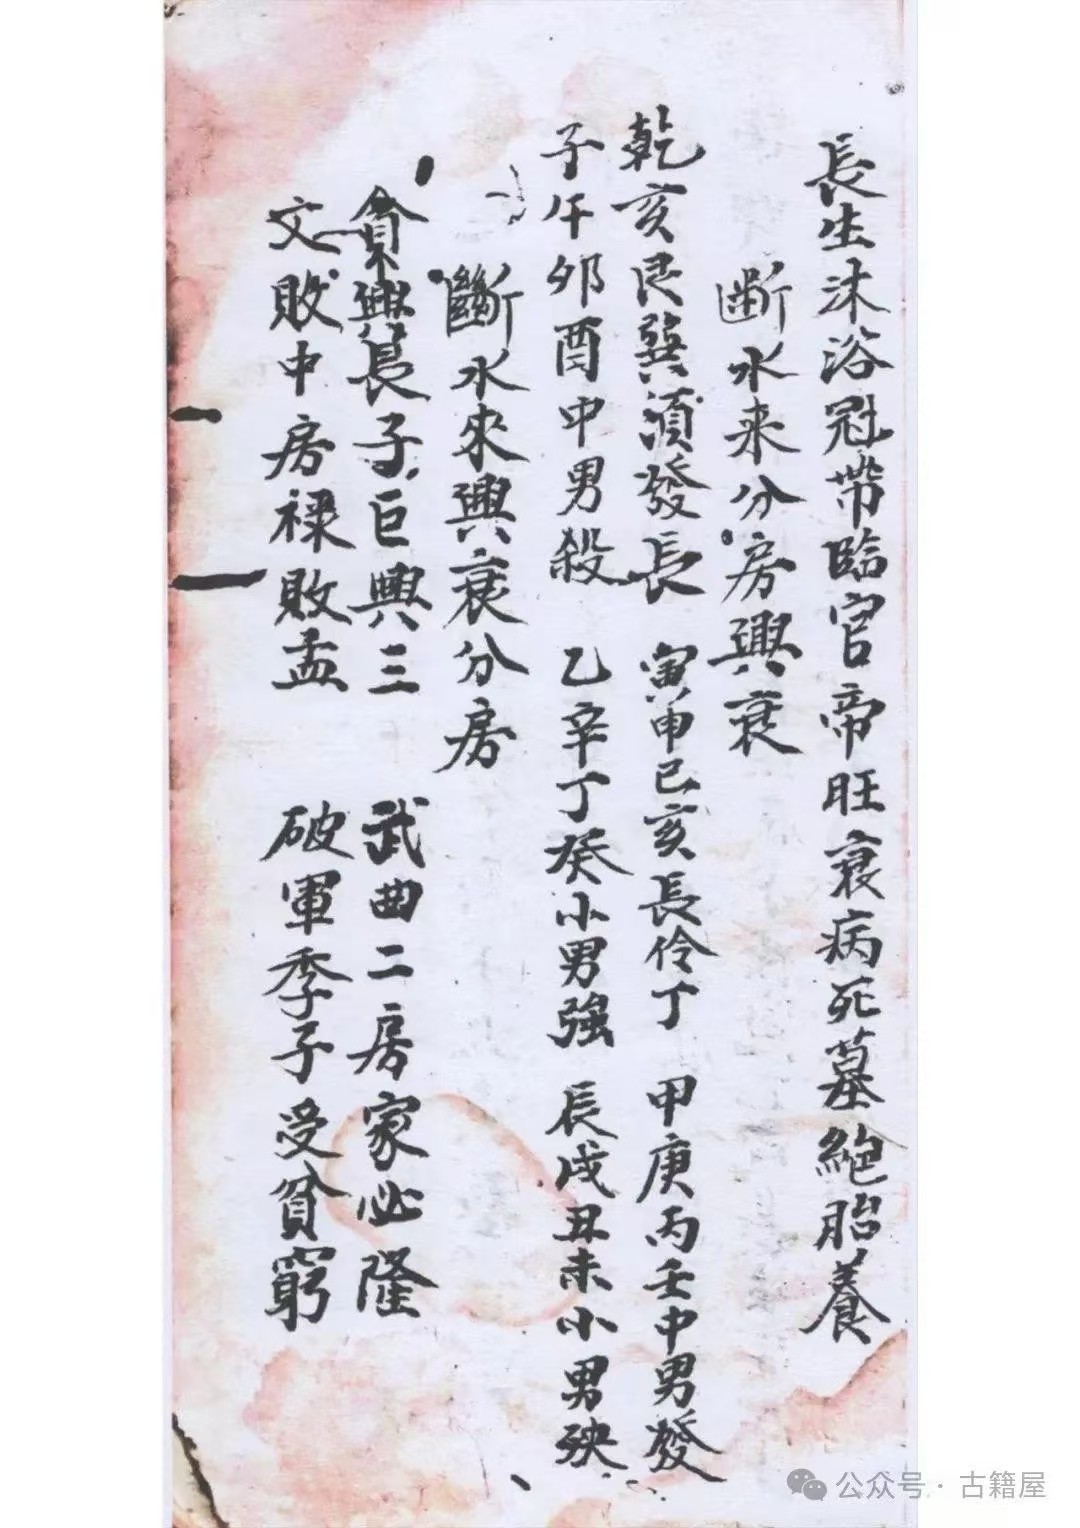 長生沐浴冠帶臨官帝旺衰病死墓絕胎養
断水来分房興衰
乾亥艮巽須發長 寅申巳亥長伶丁 甲庚丙壬中男發
子午卯酉中男殺 乙辛丁癸小男強 辰戌丑未小男殃
斷水來興衰分房
貪興長子巨興三 武曲二房家必隆
文敗中房祿敗孟 破軍季子受貧窮
公众号·古籍屋